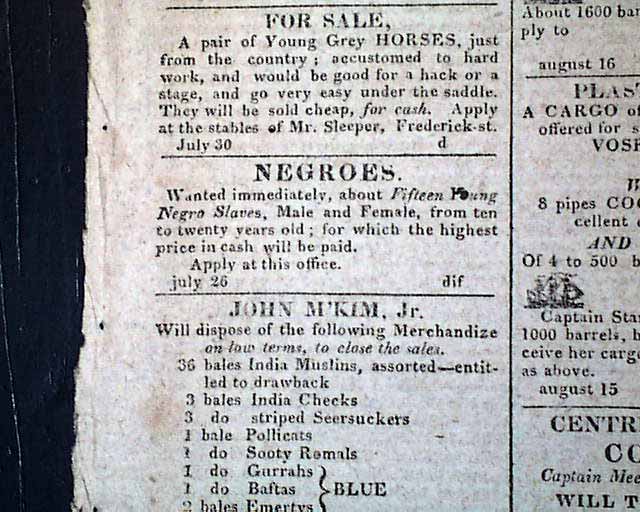 FOR SALE,
A pair of Young Grey HORSES, just
from the country ; accustomed to hard
work, and would be good for a hack or a
stage, and go very easy under the saddle.
They will be sold cheap, for cash. Apply
at the stables of Mr. Sleeper, Frederick-st.
July 30 d
NEGROES.
Wanted immediately, about Fifteen Young
Negro Slaves, Male and Female, from ten
to twenty years old ; for which the highest
price in cash will be paid.
Apply at this office.
july 26 dif
JOHN M'KIM, Jr.
Will dispose of the following Merchandize
on low terms, to close the sales.
36 bales India Muslins, assorted—entit-
led to drawback
3 bales India Checks
3 do striped Seersuckers
1 bale Pollicats
1 do Sooty Romals
1 do Gurrahs
1 do Baftas } BLUE
2 bales Emertys
About 1600 bar
ply to
august 16
PLAST
A CARGO of
offered for s
VOSE
W
8 pipes COG
cellent
AND
Of 4 to 500 b
Captain Star
1000 barrels, h
ceive her cargo
as above.
august 15
CENTRE
CO
Captain Mee
WILL T